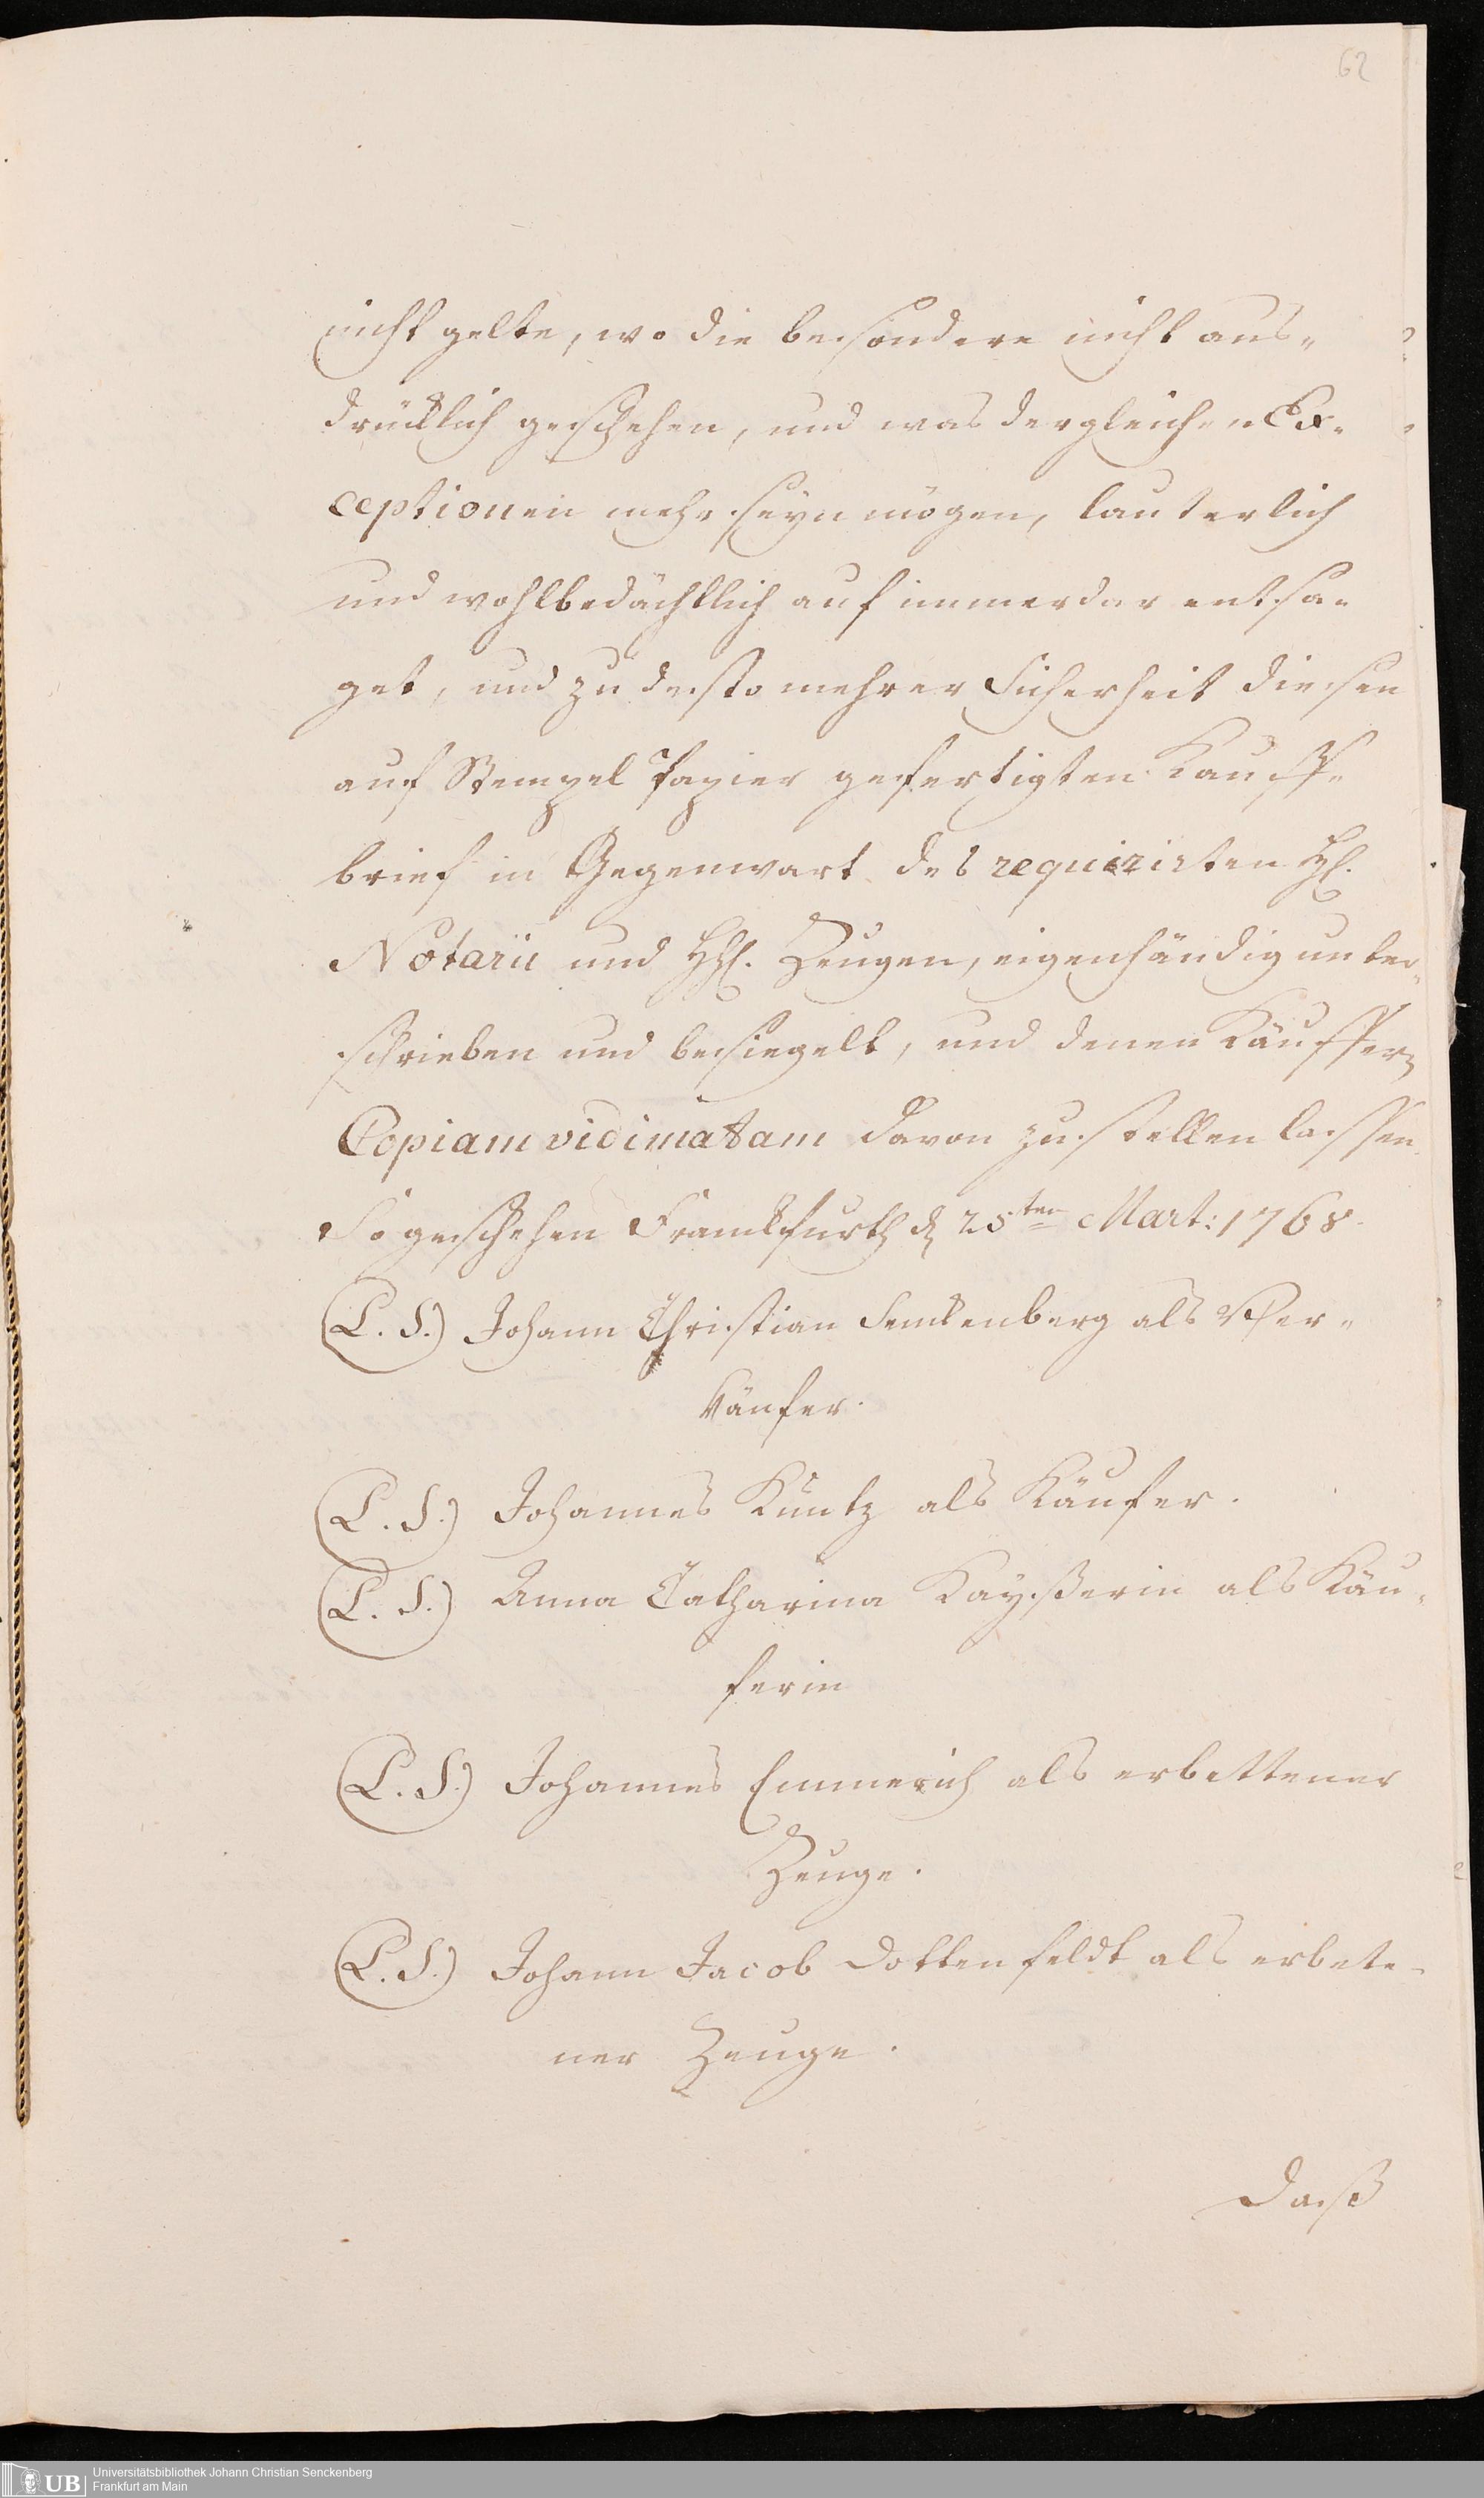 62
nicht gelte, wo die besondere nicht aus-
drücklich geschehen, und was dergleichen Ex-
ceptionen mehr seyn mögen, lauterlich
und wohlbedächtlich auf immerdar entsa-
get, und zu desto mehrer Sicherheit diesen
auf Stempel Papier gefertigten Kauff-
brief in Gegenwart des requirirten H.
Notarii und HH. Zeugen, eigenhändig unter-
schrieben und besiegelt, und denen Käuffern
Copiam vidimatam davon zustellen lassen.
So geschehen Franckfurth d. 25ten Mart: 1768.
(L. S.) Johann Christian Senckenberg als Ver-
käufer.
(L. S.) Johannes Kuntz als Käufer.
(L. S.) Anna Catharina Kayßerin als Käu-
ferin
(L. S.) Johannes Emmerich als erbettener
Zeuge.
(L. S.) Johann Jacob Dottenfeldt als erbete-
ner Zeuge.
Daß
UB Universitätsbibliothek Johann Christian Senckenberg
Frankfurt am Main